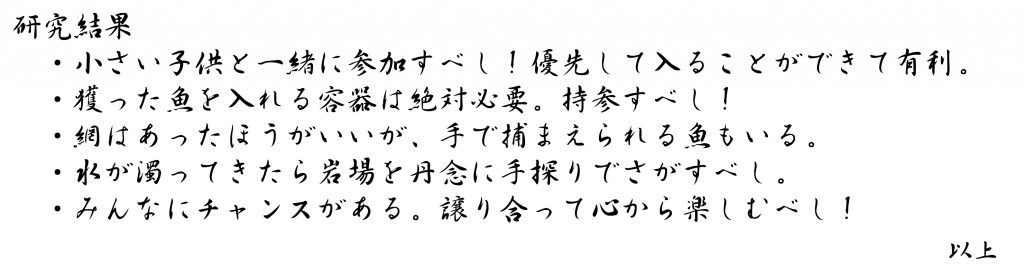 研究結果
・小さい子供と一緒に参加すべし！優先して入ることができて有利。
・獲った魚を入れる容器は絶対必要。持参すべし！
・網はあったほうがいいが、手で捕まえられる魚もいる。
・水が濁ってきたら岩場を丹念に手探りでさがすべし。
・みんなにチャンスがある。譲り合って心から楽しむべし！
以上